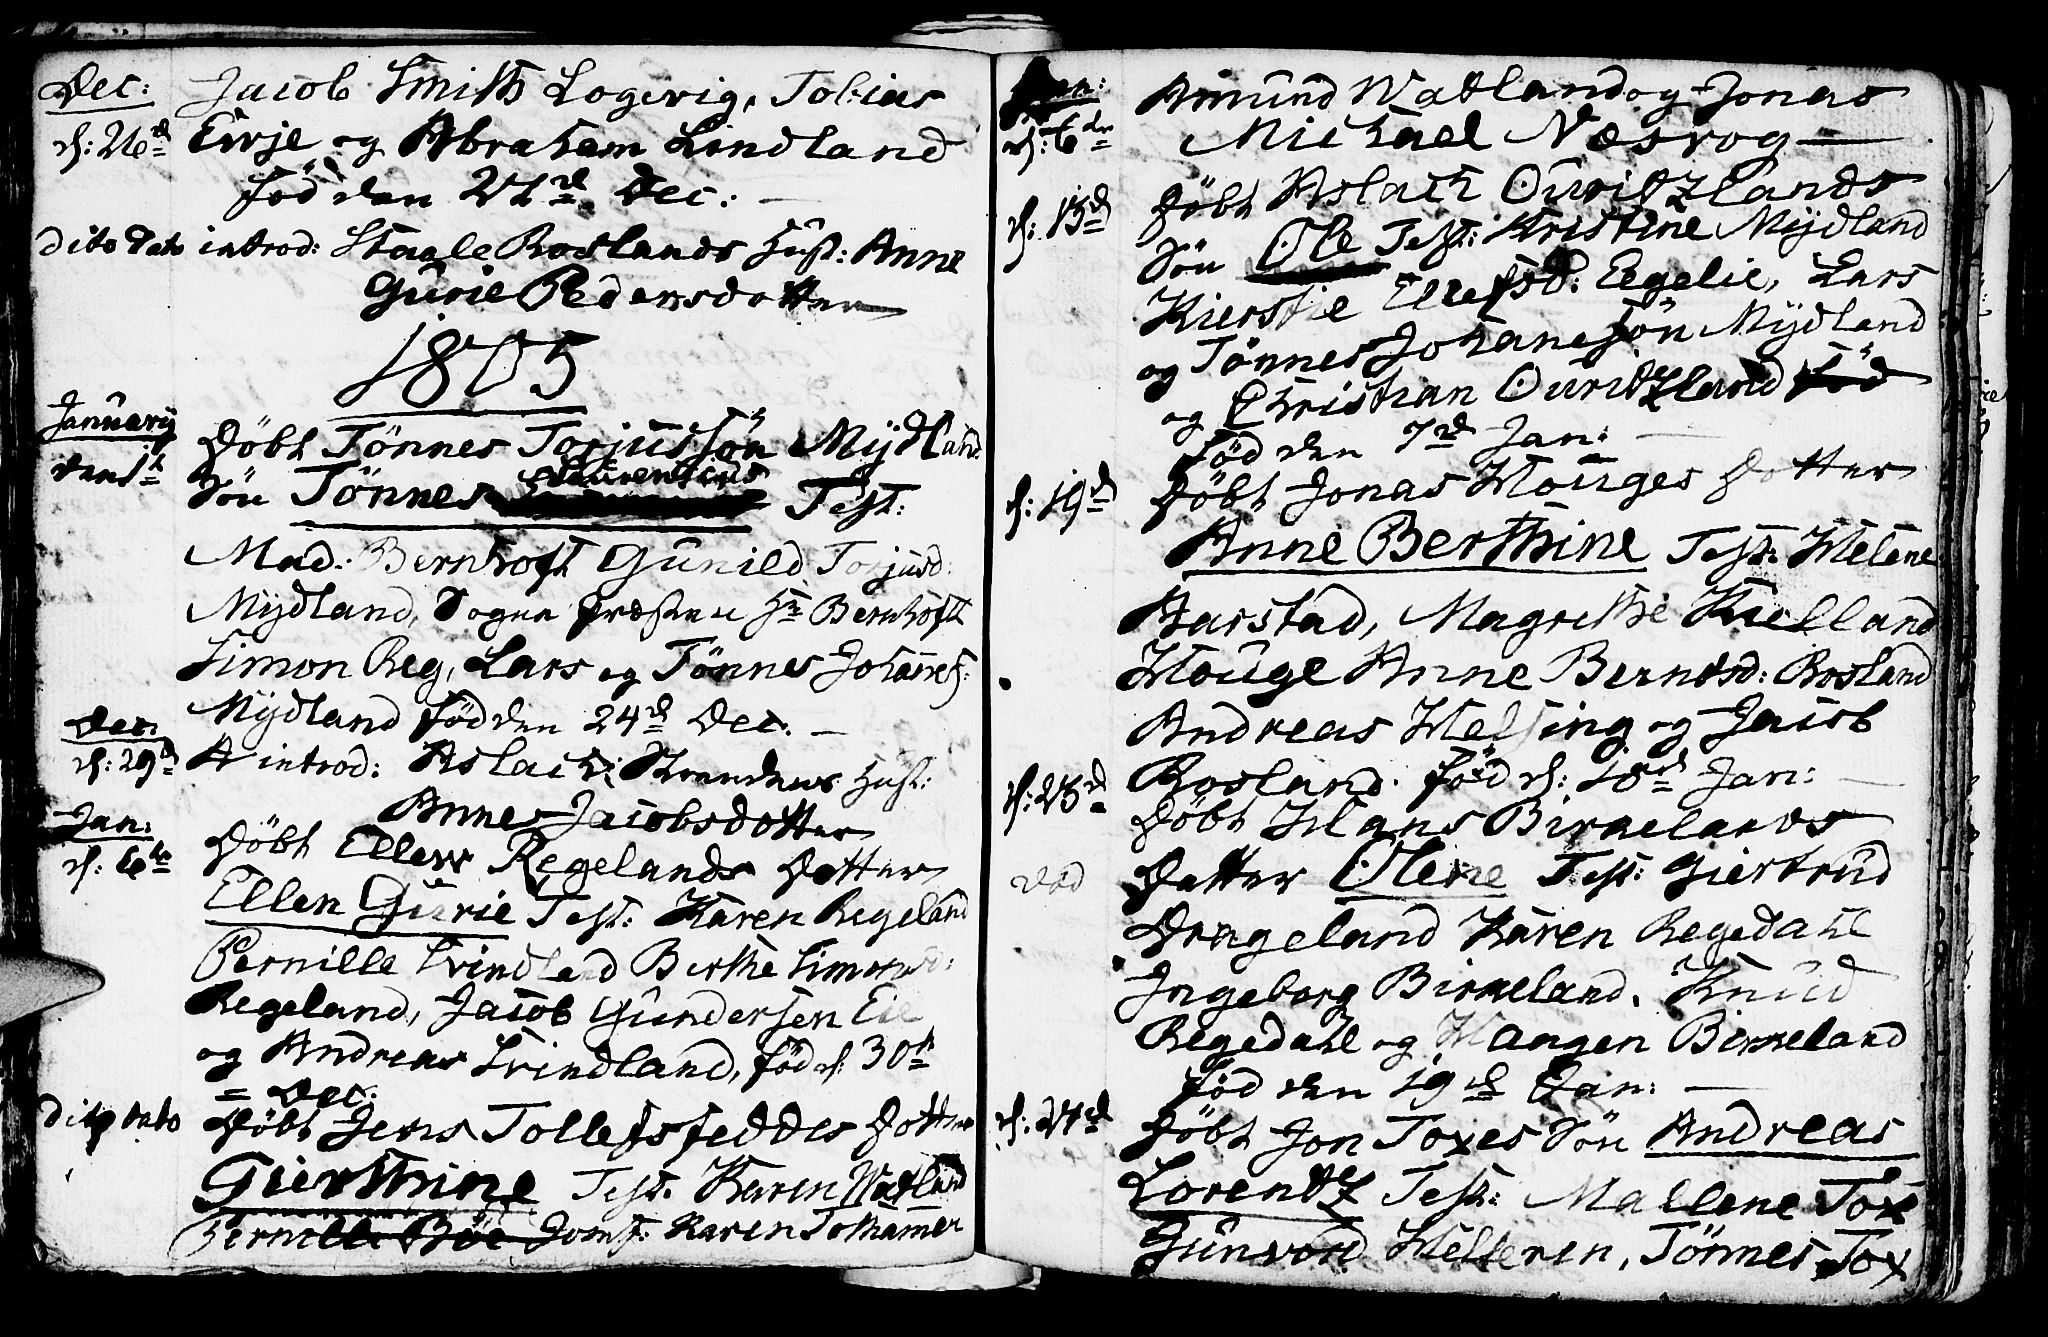 Dec: Jacob Smith Logevig, Tobias
d: 26de Eirje og Abraham Lindland
født den 21de Dec: —
dito dato introd: Staale Roslands Hust: Anne
Gurie Pedersdotter
1805
January
Døbt Tönnes Torjussön Mydland
den 1te Sön Tönnes Laurentius Test:
Mad: Bernhoft Gunild Torjusd:
Mydland, Sogne Præsten Hr Bernhoft
Simon Reg, Lars og Tönnes Johannes:
Mydland född den 24de Dec. —
Dec:
d: 29de introd: Aslach Strandens Hust:
Anne Jacobsdotter
Jan:
d: 6te Döbt Ellers Regelands Dotter
Ellen Gurie Test: Karen Regeland
Pernille Svindland Berthe Simonsd:
Regeland, Jacob Gundersen Eie
og Andreas Svindland, föd d: 30te
= Dec:
dito dato Döbt Jens Tollefsfeddes Dotter
Gierthine Test: Karen Watland
Pernille Böe Jomf: Karen Tothamer
Jan: Amund Watland og Jonas
d: 6de Michael Næsvog —
d: 13de Döbt Aslach Ouridtzlands
Sön Ole Test: Kristine Mydland
Kierstie Ellefsd: Eegelie, Lars
og Tönnes Johanesön Mydland
og Christian Ouridtzland föd
föd den 7de Jan: —
d: 19de Döbt Jonas Houges Dotter
Anne Berthine Test: Helene
Barstad, Magrethe Kielland
Houge Anne Berntsd: Rosland
Andreas Helsing og Jacob
Rosland. föd d: 18de Jan: —
d: 23de Döbt Hans Birkelands
död Datter Olene Test: Giertrud
Drageland Karen Regedahl
Ingeborg Birkeland, Knud
Regedahl og Haagen Birkeland
föd den 19de Jan: —
d: 24de Döbt Jon Toxes Sön Andreas
Lorentz Test: Mallene Tox
Gunvord Helleren, Tönnes Tox